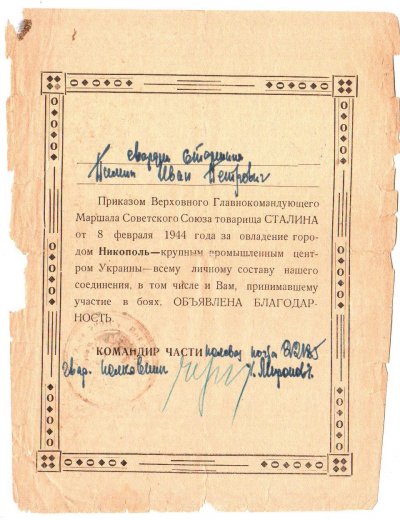 гвардии старшина
Иван Петрович
Приказом Верховного Главнокомандующего
Маршала Советского Союза товарища СТАЛИНА
от 8 февраля 1944 года за овладение горо-
дом Никополь—крупным промышленным цент-
ром Украины—всему личному составу нашего
соединения, в том числе и Вам, принимавшему
участие в боях, ОБЪЯВЛЕНА БЛАГОДАР-
НОСТЬ.
КОМАНДИР ЧАСТИ полевая почта
гвар. полковник